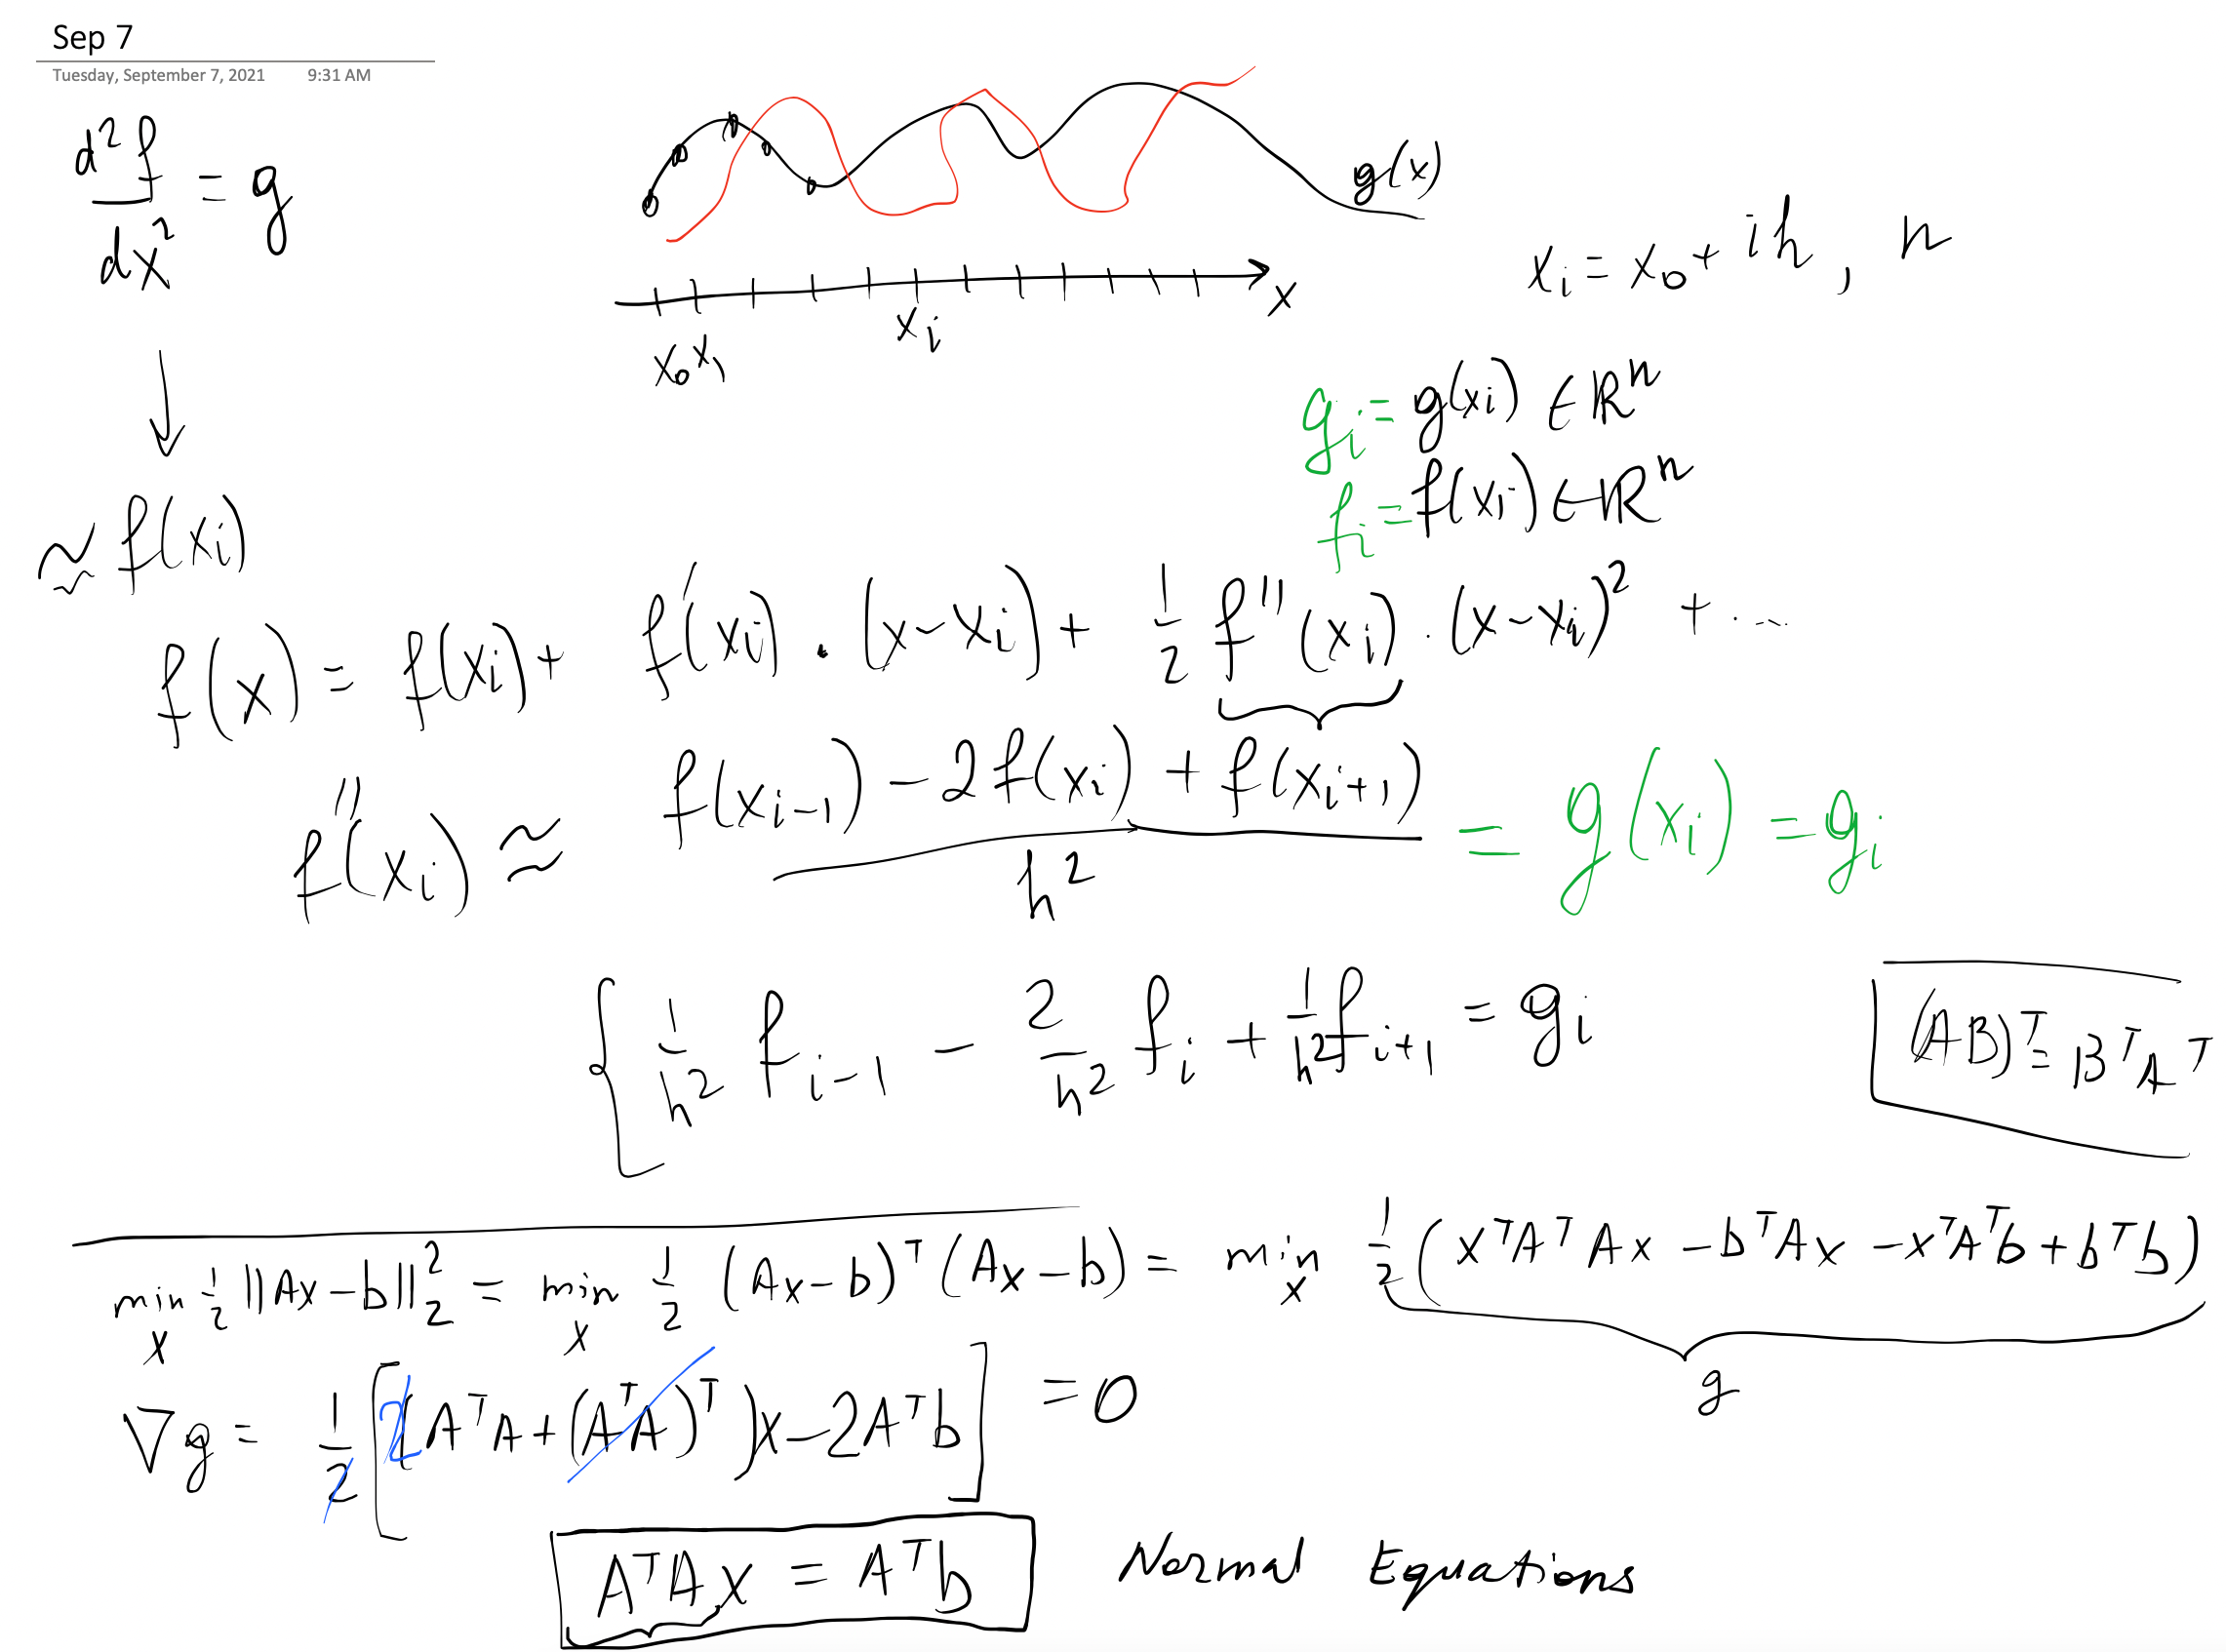 Sep 7
Tuesday, September 7, 2021 9:31 AM
d²f/dx² = g
g(x)
x
x₀ x₁ xᵢ
xᵢ = x₀ + ih, n
gᵢ = g(xᵢ) ∈ ℝⁿ
fᵢ = f(xᵢ) ∈ ℝⁿ
≈ f(xᵢ)
f(x) = f(xᵢ) + f'(xᵢ) · (x - xᵢ) + 1/2 f''(xᵢ) · (x - xᵢ)² + ...
f''(xᵢ) ≈ (f(xᵢ₋₁) - 2f(xᵢ) + f(xᵢ₊₁))/h² = g(xᵢ) = gᵢ
{ 1/h² fᵢ₋₁ - 2/h² fᵢ + 1/h² fᵢ₊₁ = gᵢ
(AB)ᵀ = BᵀAᵀ
min_x 1/2 ||Ax - b||₂² = min_x 1/2 (Ax - b)ᵀ(Ax - b) = min_x 1/2 (xᵀAᵀAx - bᵀAx - xᵀAᵀb + bᵀb)
g
∇g = 1/2 [2(AᵀA + (AᵀA)ᵀ)x - 2Aᵀb] = 0
AᵀAx = Aᵀb Normal Equations